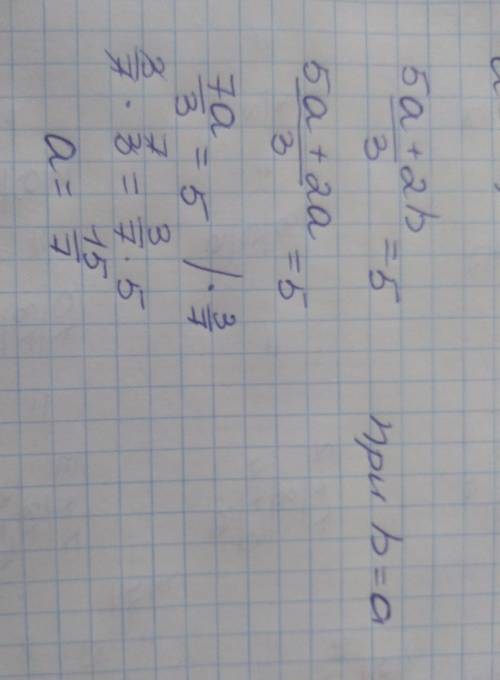 (5a + 2b)/3 = 5 при b = a
(5a + 2a)/3 = 5
7a/3 = 5 / · 3/7
3/7 · 7/3 = 3/7 · 5
a = 15/7